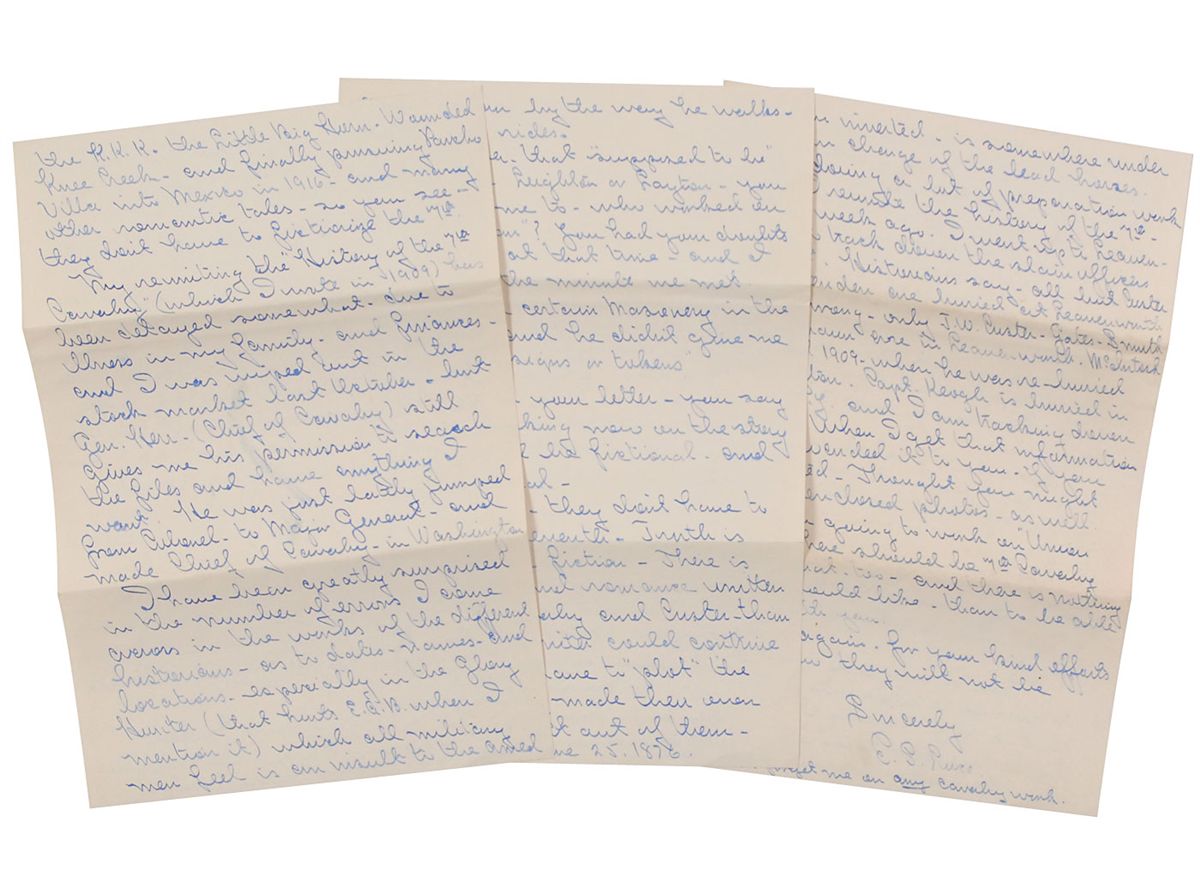 the K.K.K. the Little Big Horn - Wounded
Knee Creek - and finally pursuing Pancho
Villa into Mexico in 1916 - and many
other romantic tales - so you see -
they don't have to fictionize the 7th.
My rewriting the "History of the 7th
Cavalry" (which I wrote in 1909) has
been delayed somewhat - due to
illness in my family - and finances -
and I was wiped out in the
stock market last October - but
Gen. Herr - (Chief of Cavalry) still
gives me his permission to search
the files and have anything I
want. He was just lately jumped
from Colonel - to Major General - and
made Chief of Cavalry - in Washington
I have been greatly surprised
in the number of errors I come
across in the works of the different
historians - as to dates - names - and
locations - especially in the Glory
Hunter (that hurts E.A.B. when I
mention it) which all military
men feel is an insult to the armed
by the way he walks -
rides.
that "supposed to be"
Leighton or Layton - you
me to - who worked on
"? You had your doubts
at that time - and I
the minute we met.
certain Masonry in the
and he didn't give me
signs or tokens"
your letter - you say
king now on the story
be fictional - and
they don't have to
Seventh - Truth is
fiction - There is
romance written
and Custer - than
writer could contrive
have to "plot" the
made their own
out of them -
ne 25. 1876.
inverted - is somewhere under
in charge of the lead horses.
doing a lot of preparation work
rewrite the history of the 7th -
week ago. I went up to Leaven-
track down the slain officers
Historians say - all but Custer
are buried at Leavenworth
wrong - only T.W. Custer - Yates - Smith
are in Leavenworth. McIntosh
1909 - when he was re-buried
ton. Capt. Keogh is buried in
and I am tracking down
When I get that information
send it to you - if you
Thought you might
enclosed photos - as well
going to work on Union
there should be 7th Cavalry
that too - and there is nothing
would like - than to be able
with you.
again. for your kind efforts
they will not be
Sincerely
forget me on any cavalry work.